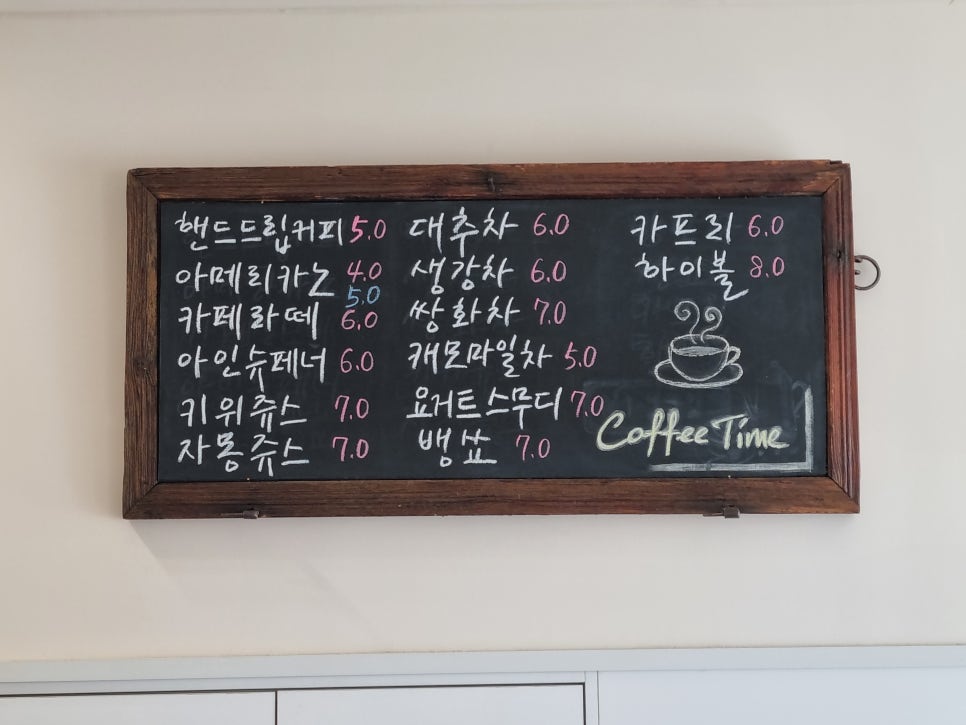 핸드드립커피 5.0
아메리카노 4.0
5.0
카페라떼 6.0
아인슈페너 6.0
키위쥬스 7.0
자몽쥬스 7.0
대추차 6.0
생강차 6.0
쌍화차 7.0
캐모마일차 5.0
요거트스무디 7.0
뱅쇼 7.0
카프리 6.0
하이볼 8.0
Coffee Time